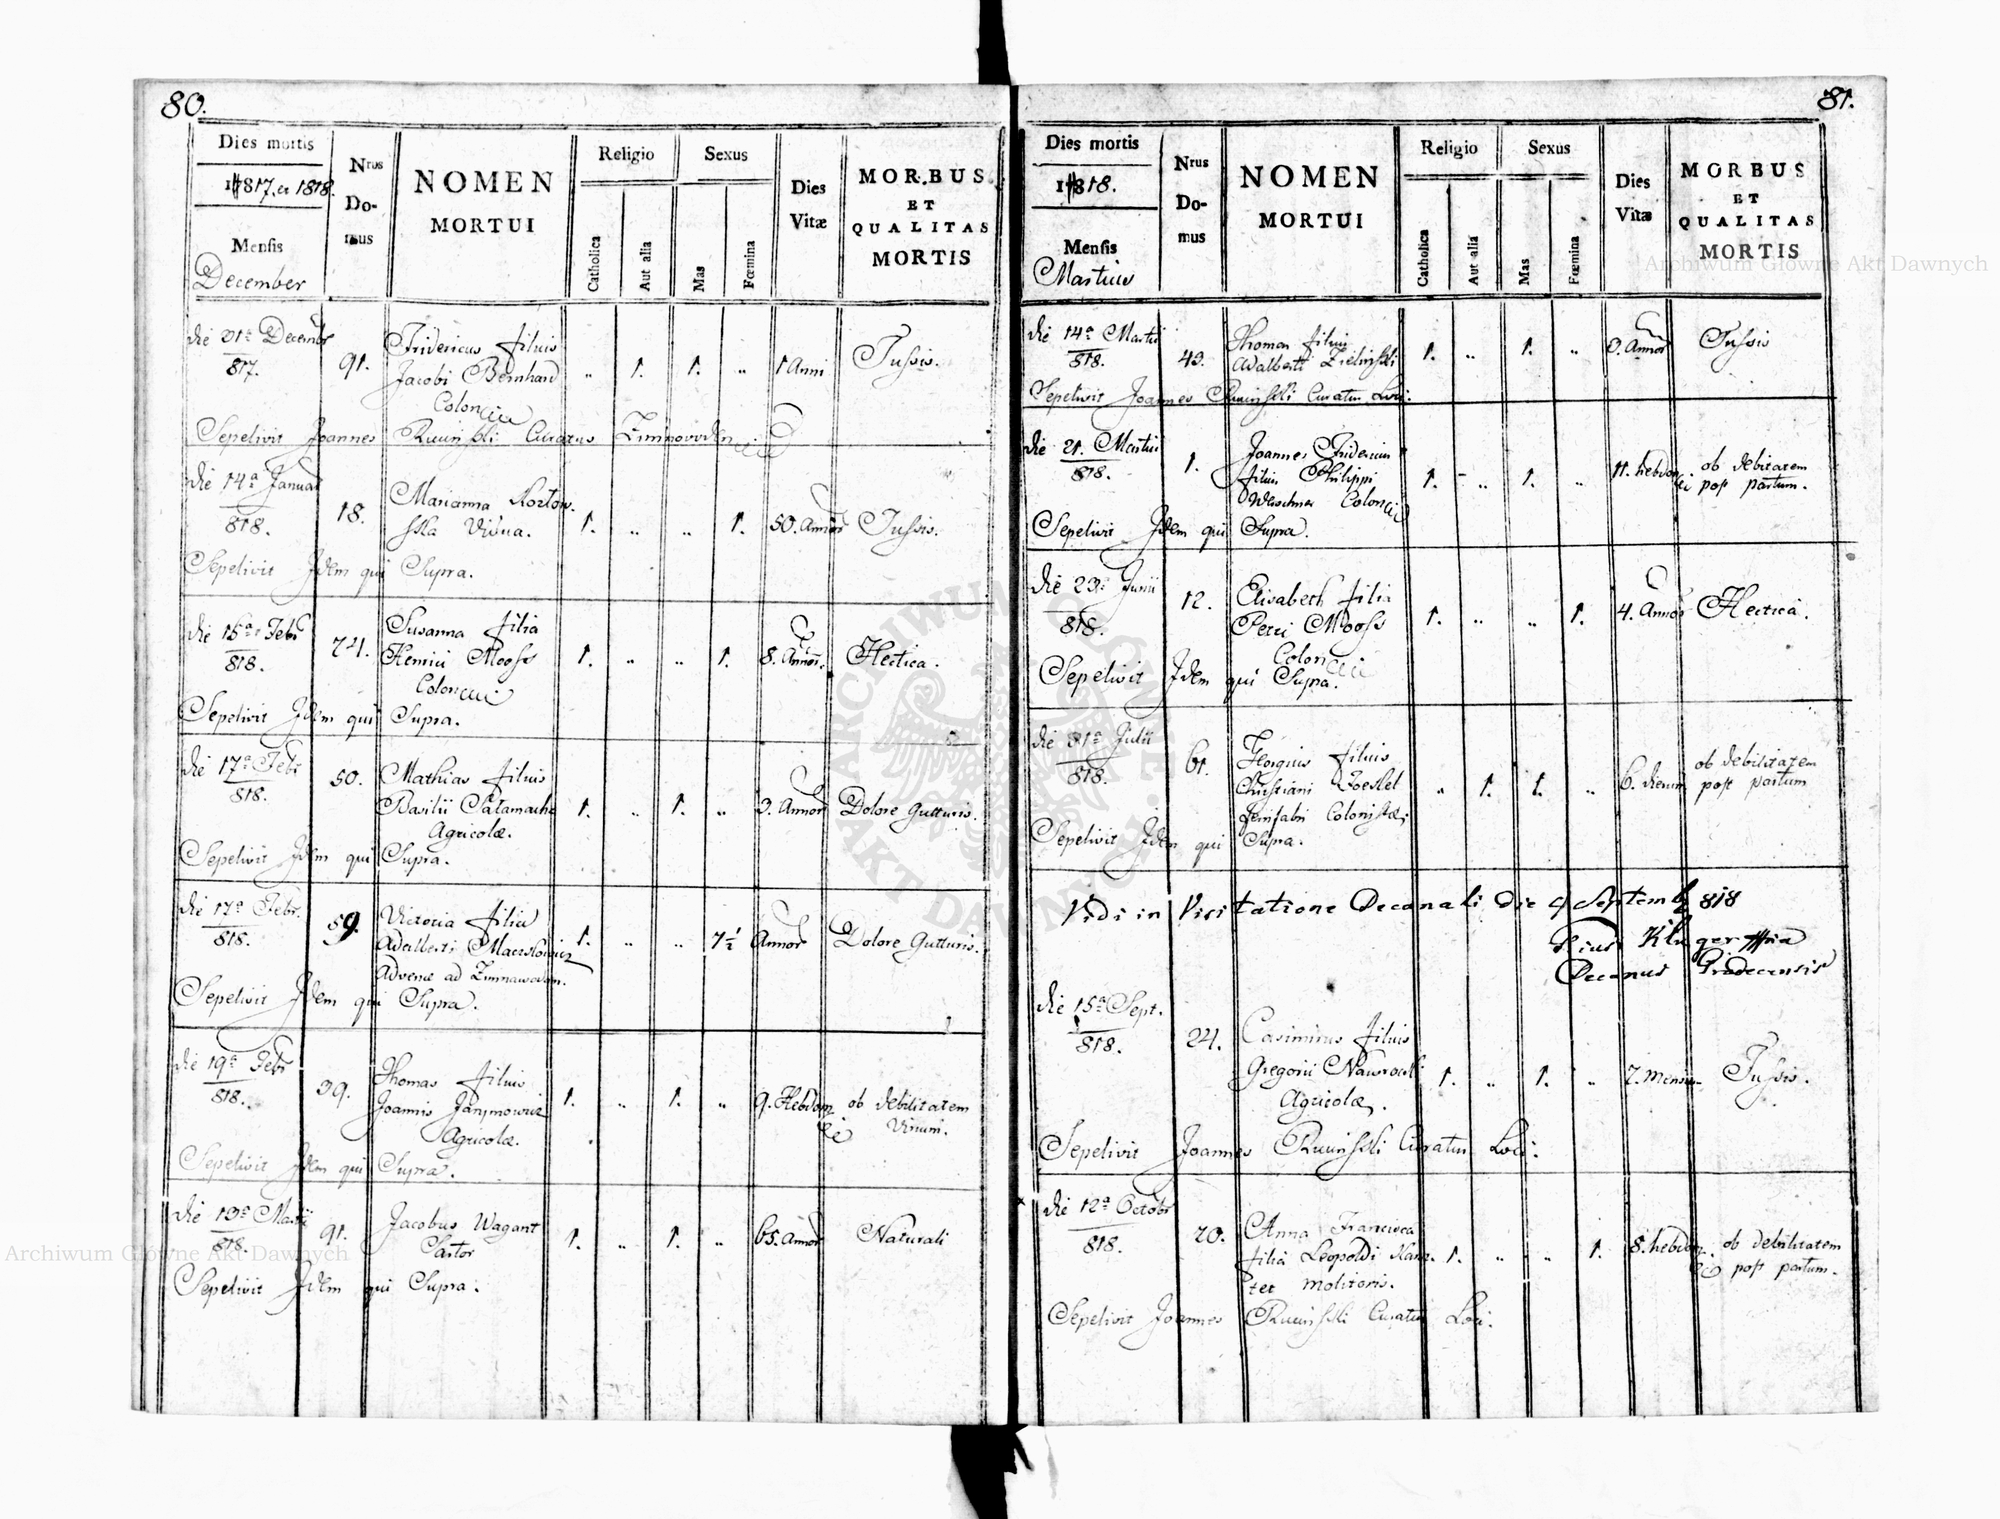 80.
Dies mortis
1817. et 1818.
Mensis
December
Nrus
Do-
mus
NOMEN
MORTUI
Religio
Catholica
Aut alia
Sexus
Mas
Fœmina
Dies
Vitæ
MORBUS
ET
QUALITAS
MORTIS
die 31a Decembr
817.
91.
Fridericus filius
Jacobi Bernhard
Colon
„ 1. 1. „
1 Anni
Tussis.
Sepelivit Joannes Curatus
die 14a Januar
818.
18.
Marianna
Vidua.
1. „ „ 1.
50. Annor
Tussis.
Sepelivit Idem qui Supra.
die 15a Febr
818.
74.
Susanna filia
Henrici Mooss
Colon
1. „ „ 1.
8. Annor.
Hectica.
Sepelivit Idem qui Supra.
die 17a Febr
818.
50.
Mathias filius
Basilii
Agricolæ.
1. „ 1. „
3. Annor
Dolore Gutturis.
Sepelivit Idem qui Supra.
die 17a Febr.
818.
59.
Victoria filia
Adalberti
ad
1. „ „
7½ Annor
Dolore Gutturis.
Sepelivit Idem qui Supra.
die 19a Febr
818.
39.
Thomas filius
Joannis
Agricolæ.
1. „ 1. „
9. Hebdom
ob debilitatem
Virium.
Sepelivit Idem qui Supra.
die 13a Martii
818.
91.
Jacobus Wagant
Sartor
1. „ 1. „
65. Annor
Naturali
Sepelivit Idem qui Supra.
81.
Dies mortis
1818.
Mensis
Martius
Nrus
Do-
mus
NOMEN
MORTUI
Religio
Catholica
Aut alia
Sexus
Mas
Fœmina
Dies
Vitæ
MORBUS
ET
QUALITAS
MORTIS
die 14a Martii
818.
43.
Thomas filius
Adalberti Zielinski
1. „ 1. „
3. Annor
Tussis
Sepelivit Joannes Curatus Loci.
die 21. Martii
818.
1.
Joannes Fridericus
filius Philippi
Colon
1. „ 1. „
11. hebdom
ob debitatem
post partum.
Sepelivit Idem qui Supra.
die 23a Junii
818.
12.
Elisabeth filia
Petri Mooss
Colon
1. „ „ 1.
4. Annor
Hectica.
Sepelivit Idem qui Supra.
die 31a Julii
818.
61.
Georgius filius
Christiani
Colonistæ
„ 1. 1. „
6. dierum
ob debilitatem
post partum
Sepelivit Idem qui Supra.
Vidi in Visitatione Decanali die 9 Septemb 818
Decanus Grodecensis
die 15a Sept.
818.
24.
Casimirus filius
Gregorii Nawrocki
Agricolæ.
1. „ 1. „
7. Mensium
Tussis.
Sepelivit Joannes Curatus Loci.
die 12a Octobr
818.
20.
Anna Francisca
filia Leopoldi
Molitoris.
1. „ „ 1.
8. hebdom
ob debilitatem
post partum.
Sepelivit Joannes Curatus Loci.
Archiwum Główne Akt Dawnych
Archiwum Główne Akt Dawnych
ARCHIWUM GŁÓWNE
AKT DAWNYCH